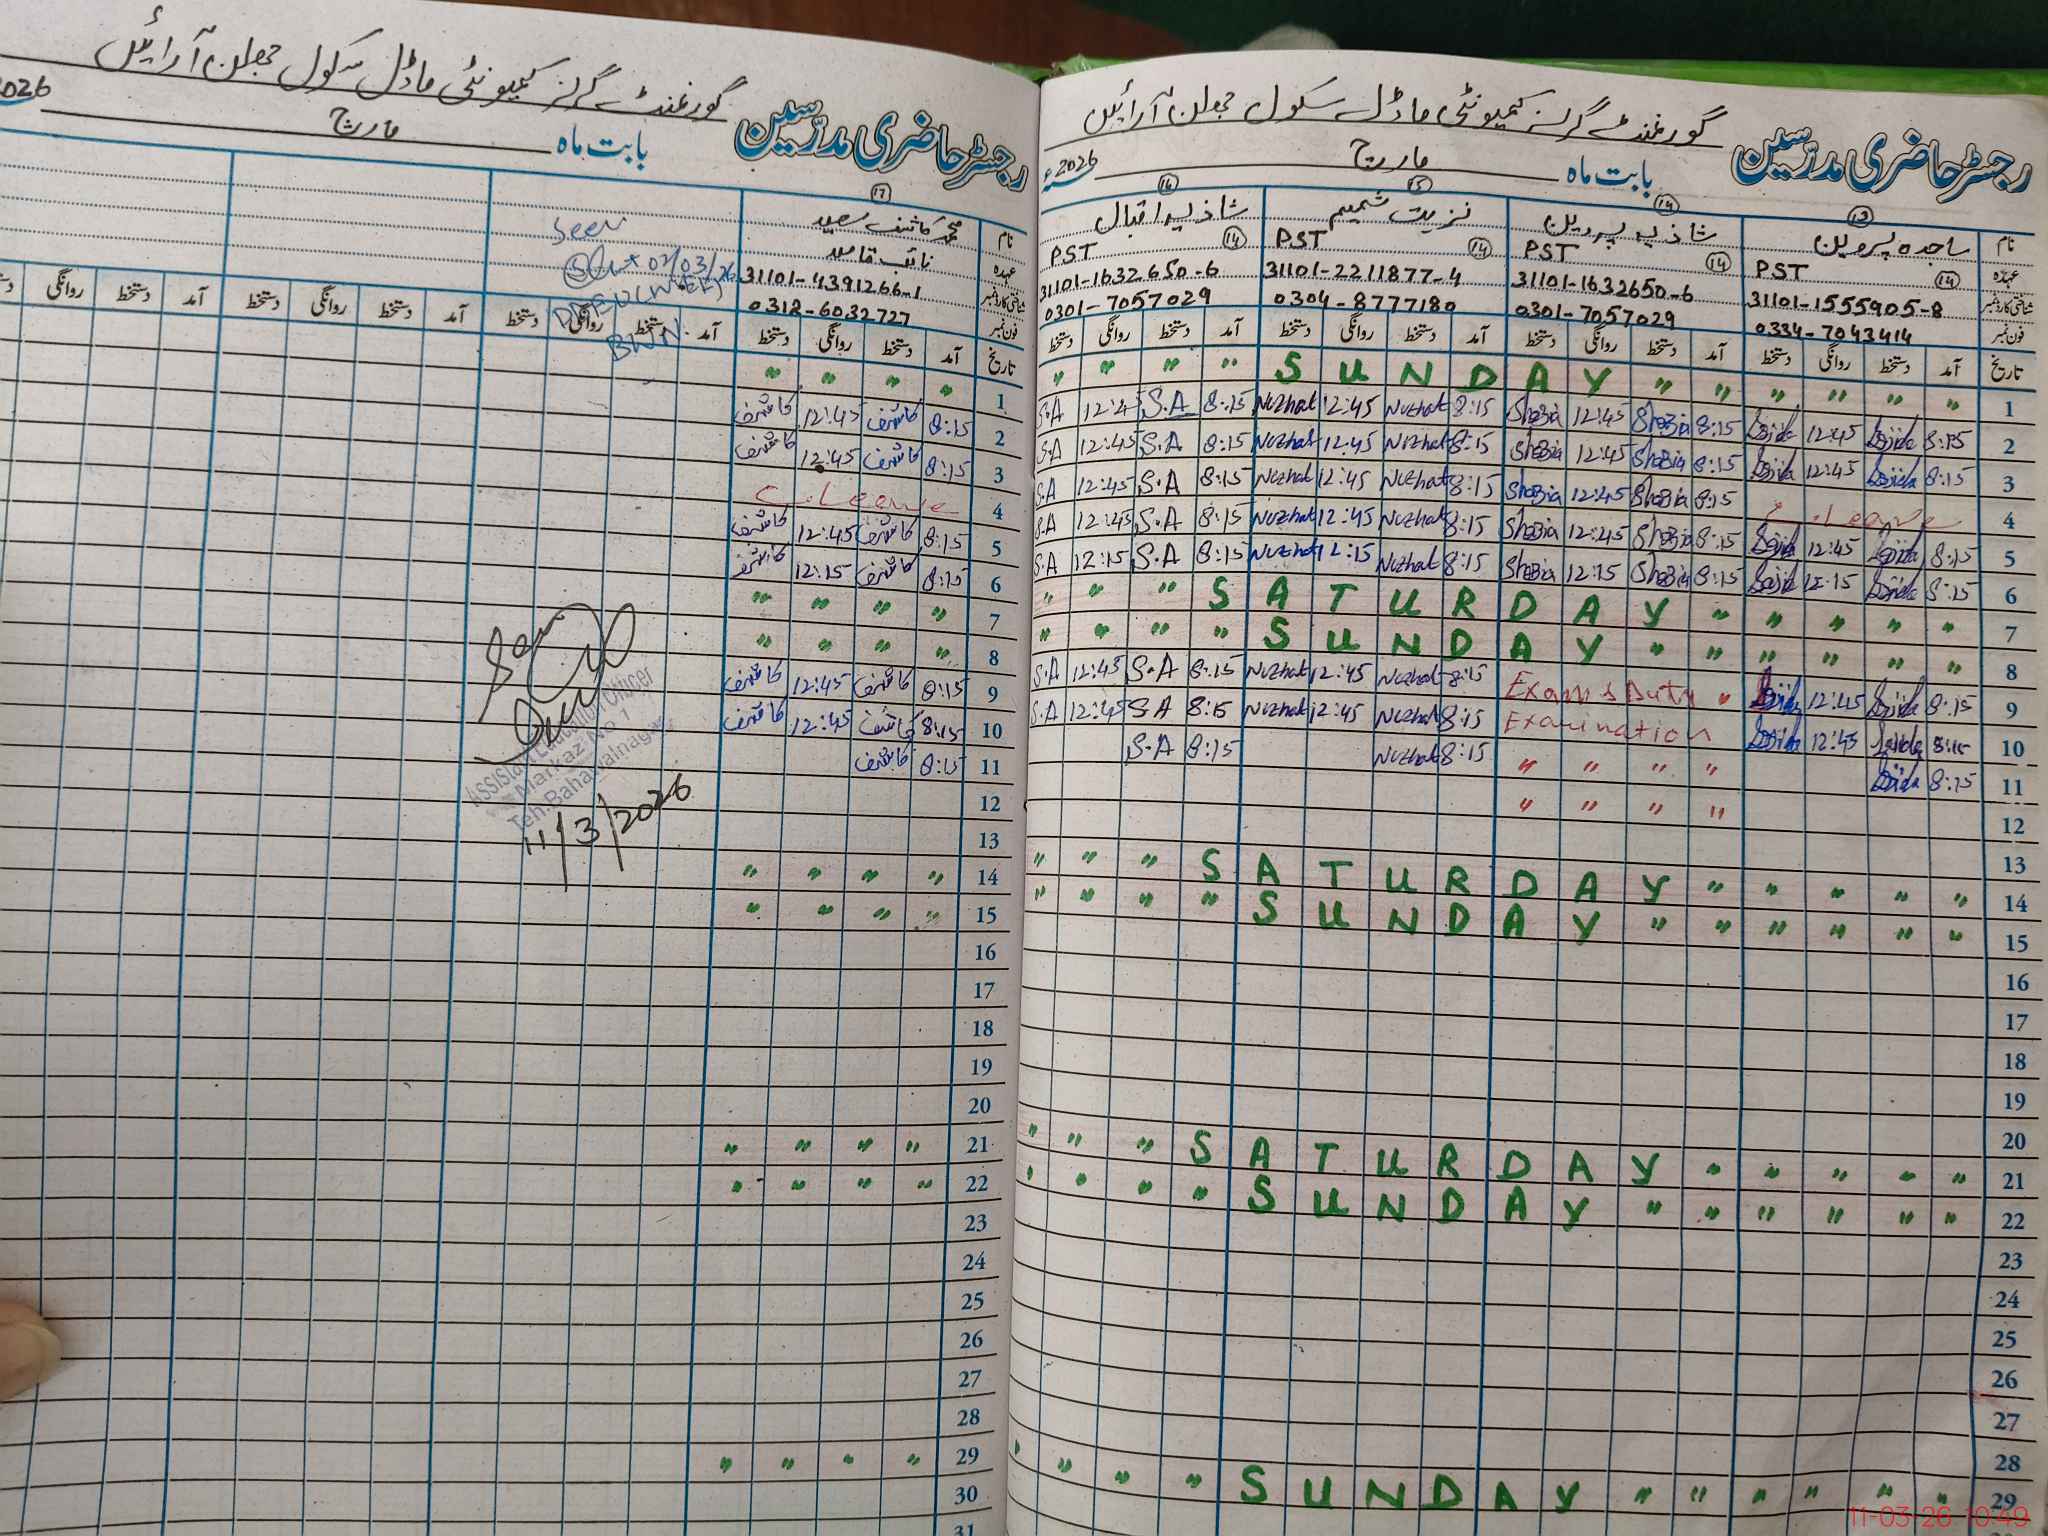 گورنمنٹ گرلز کمیونٹی ماڈل سکول جھلن آرائیں
رجسٹر حاضری مدرسین
بابت ماہ مارچ 2026ء
13 14 15 16
نام ساجدہ پروین شازیہ پروین نزہت شمیم شازیہ اقبال
عہدہ PST 14 PST 14 PST 14 PST 14
شناختی کارڈ نمبر 31101-1555905-8 31101-1632650-6 31101-2211877-4 31101-1632650-6
فون نمبر 0334-7043414 0301-7057029 0304-8777180 0301-7057029
تاریخ آمد دستخط روانگی دستخط آمد دستخط روانگی دستخط آمد دستخط روانگی دستخط آمد دستخط روانگی دستخط
1 " " " " " " SUNDAY " " " "
2 8:15 Sajida 12:45 Sajida 8:15 Shazia 12:45 Shazia 8:15 Nuzhat 12:45 Nuzhat 8:15 S.A 12:45 S.A
3 8:15 Sajida 12:45 Sajida 8:15 Shazia 12:45 Shazia 8:15 Nuzhat 12:45 Nuzhat 8:15 S.A 12:45 S.A
4 C.Leave 8:15 Shazia 12:45 Shazia 8:15 Nuzhat 12:45 Nuzhat 8:15 S.A 12:45 S.A
5 8:15 Sajida 12:45 Sajida 8:15 Shazia 12:45 Shazia 8:15 Nuzhat 12:45 Nuzhat 8:15 S.A 12:45 S.A
6 8:15 Sajida 12:15 Sajida 8:15 Shazia 12:15 Shazia 8:15 Nuzhat 12:15 Nuzhat 8:15 S.A 12:15 S.A
7 " " " " " SATURDAY " " "
8 " " " " " " SUNDAY " " " "
9 8:15 Sajida 12:45 Sajida Exams Duty " 8:15 Nuzhat 12:45 Nuzhat 8:15 S.A 12:45 S.A
10 8:15 Sajida 12:45 Sajida Examination 8:15 Nuzhat 12:45 Nuzhat 8:15 S.A 12:45 S.A
11 8:15 Sajida " " " " 8:15 Nuzhat 8:15 S.A
12 " " " "
13
14 " " " " " SATURDAY " " "
15 " " " " " " SUNDAY " " " "
16
17
18
19
20
21 " " " " " SATURDAY " " "
22 " " " " " " SUNDAY " " " "
23
24
25
26
27
28
29 " " " " " " SUNDAY " " " "
11-03-26 10:49
گورنمنٹ گرلز کمیونٹی ماڈل سکول جھلن آرائیں
رجسٹر حاضری مدرسین
بابت ماہ مارچ 2026
17
نام محمد کاشف سعید
عہدہ نائب قاصد
شناختی کارڈ نمبر 31101-4391266-1
فون نمبر 0312-6032727
تاریخ آمد دستخط روانگی دستخط آمد دستخط روانگی دستخط آمد دستخط روانگی دستخط آمد دستخط روانگی
Seen
02/03/26
BWN.
1 " " " "
2 8:15 کاشف 12:45 کاشف
3 8:15 کاشف 12:45 کاشف
4 C.Leave
5 8:15 کاشف 12:45 کاشف
6 8:15 کاشف 12:15 کاشف
7 " " " "
8 " " " "
9 8:15 کاشف 12:45 کاشف
10 8:15 کاشف 12:45 کاشف
11 8:15 کاشف
12
13
14 " " " "
15 " " " "
16
17
18
19
20
21 " " " "
22 " " " "
23
24
25
26
27
28
29 " " " "
30
31
Seen
Assistant Education Officer
Markaz No 1
Teh. Bahawalnagar
11/3/2026